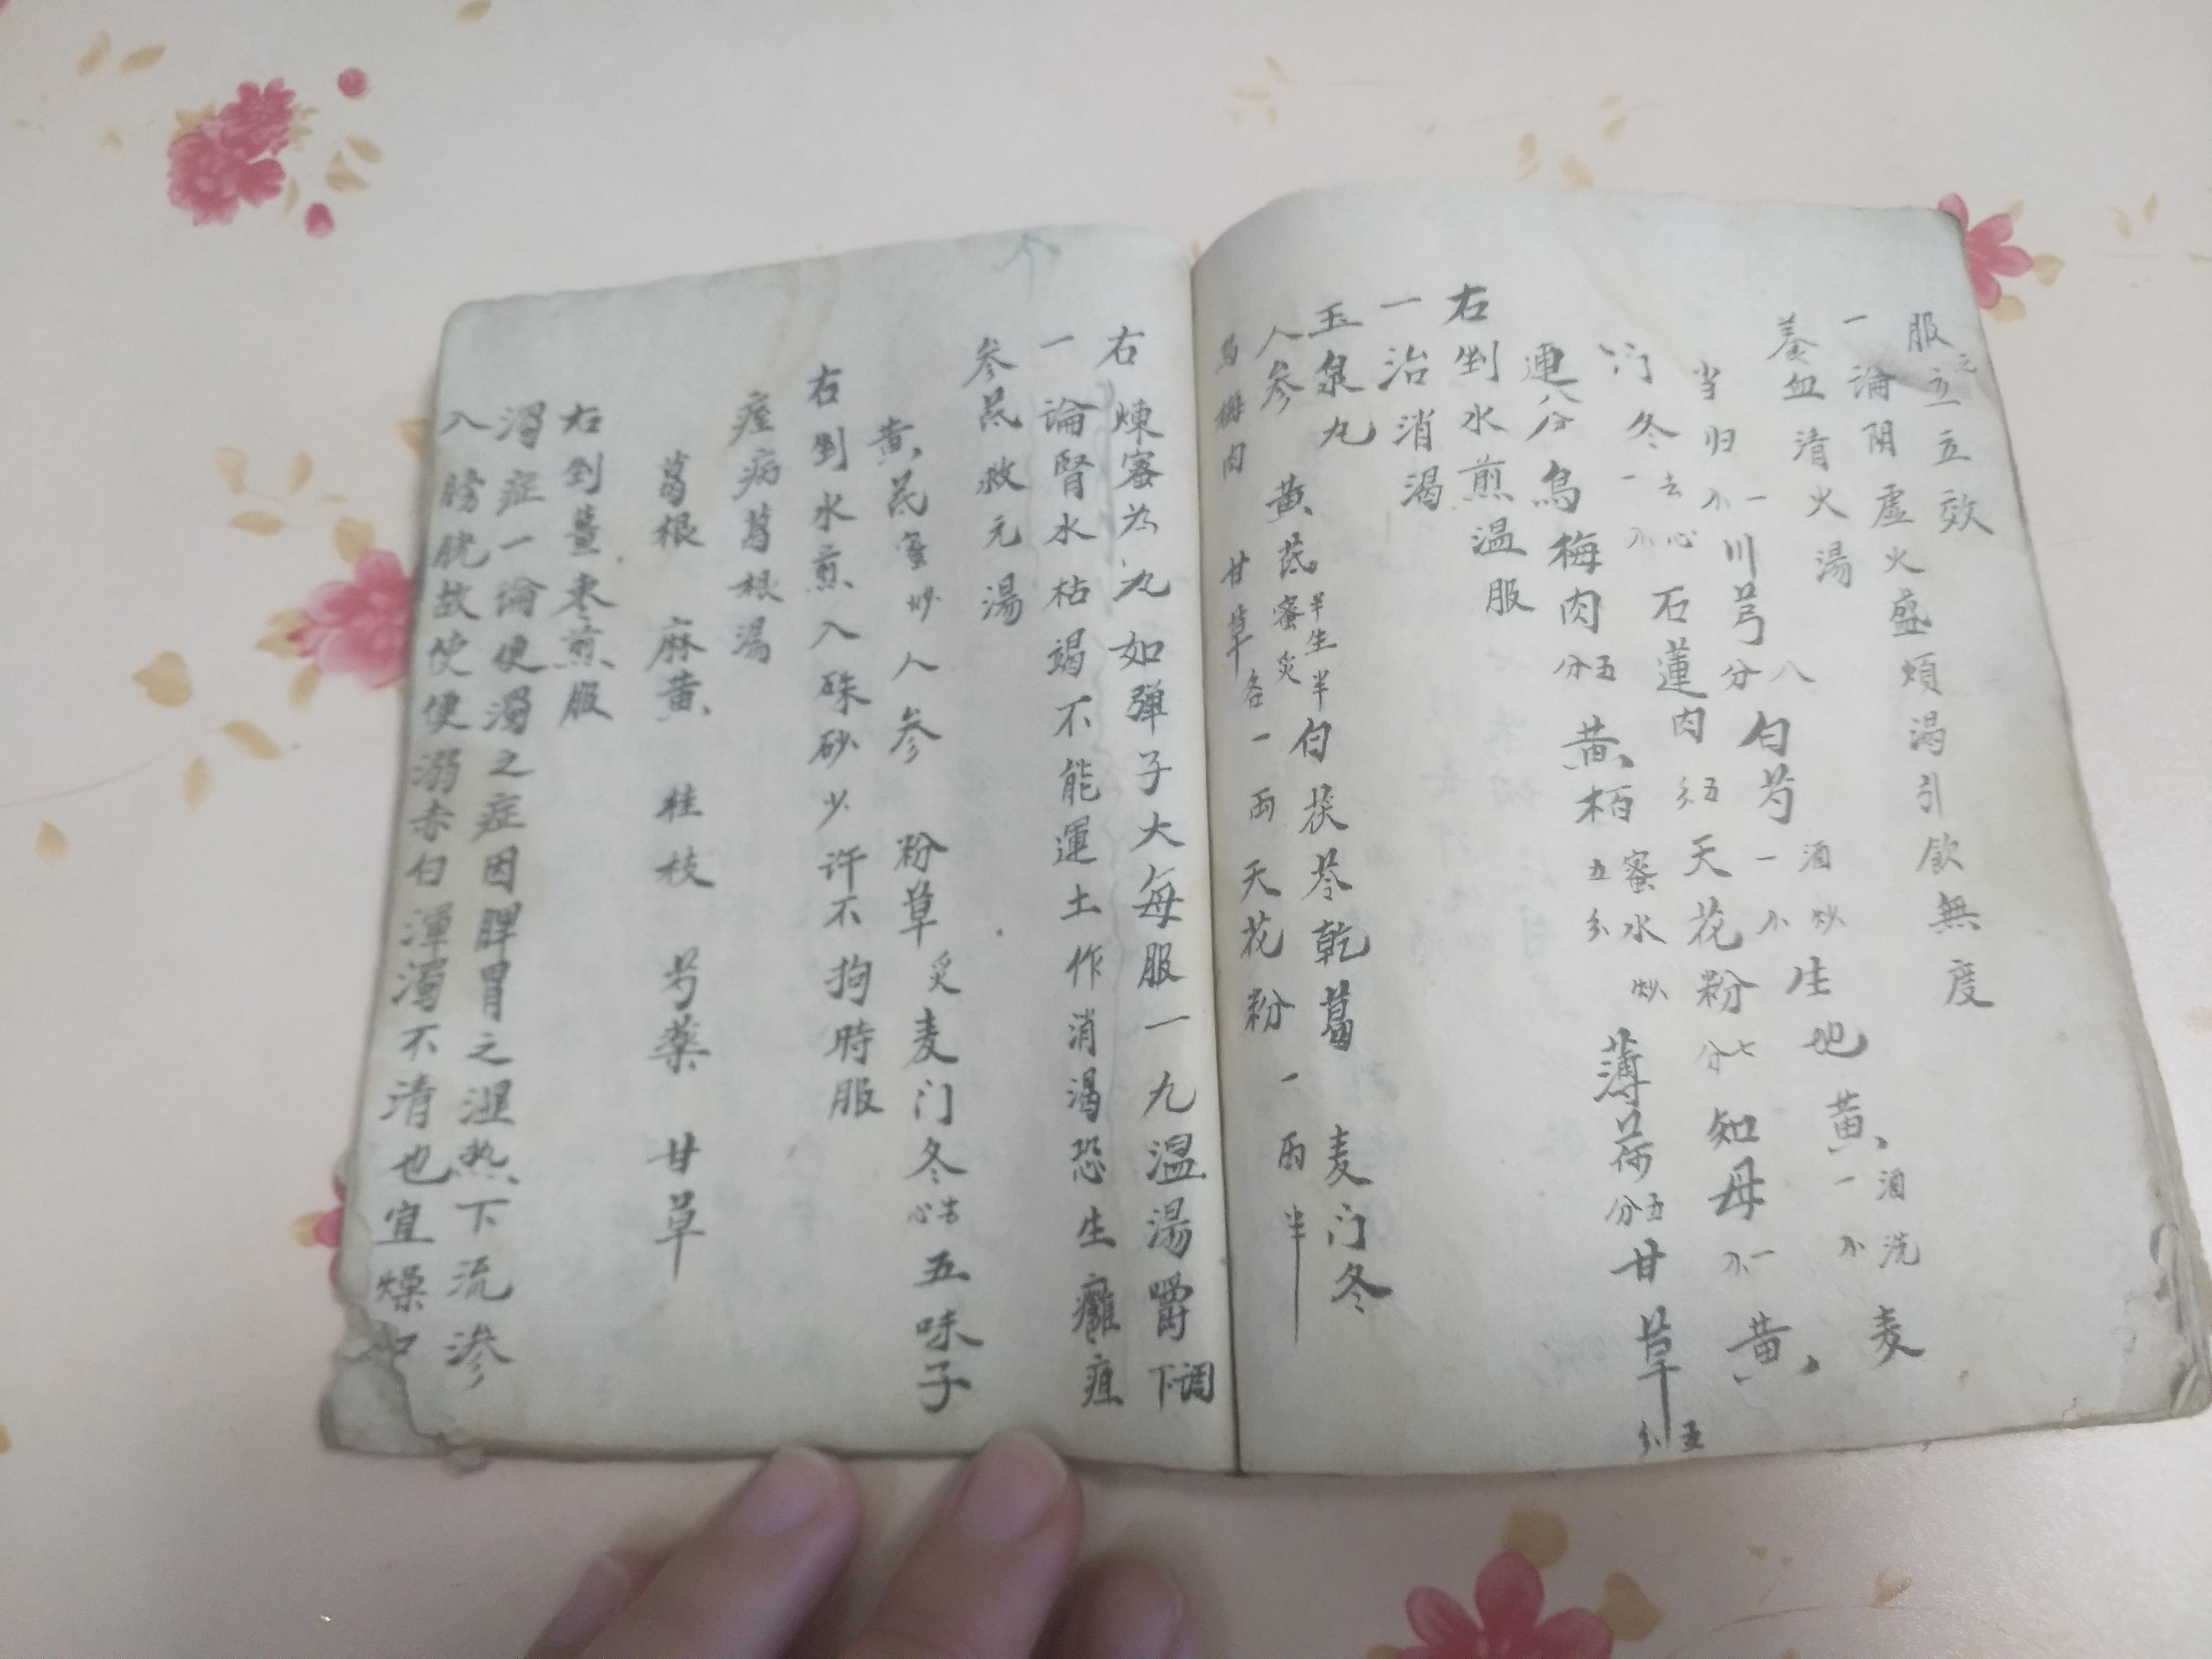 服之立立效
一論阴虚火盛煩渴引飲無度
養血清火湯
当归一川芎八分白芍酒炒一生地黄酒洗一麦
门冬去心一石蓮肉五分天花粉七分知母一黄
連八分烏梅肉五分黄栢蜜水炒五分薄荷五分甘草五分
右剉水煎温服
一治消渴
玉泉丸
人参黄芪半生半蜜炙白茯苓乾葛麦门冬
烏梅肉甘草各一两天花粉一两半
右煉蜜為丸如弹子大每服一丸温湯嚼調下
一論腎水枯竭不能運土作消渴恐生癰疽
参芪救元湯
黄芪蜜炒人参粉草炙麦门冬去心五味子
右剉水煎入硃砂少许不拘時服
痓病葛根湯
葛根麻黄桂枝芍薬甘草
右剉薑枣煎服
濁症一論便濁之症因脾胃之湿热下流渗
入膀胱故使便溺赤白渾濁不清也宜燥中